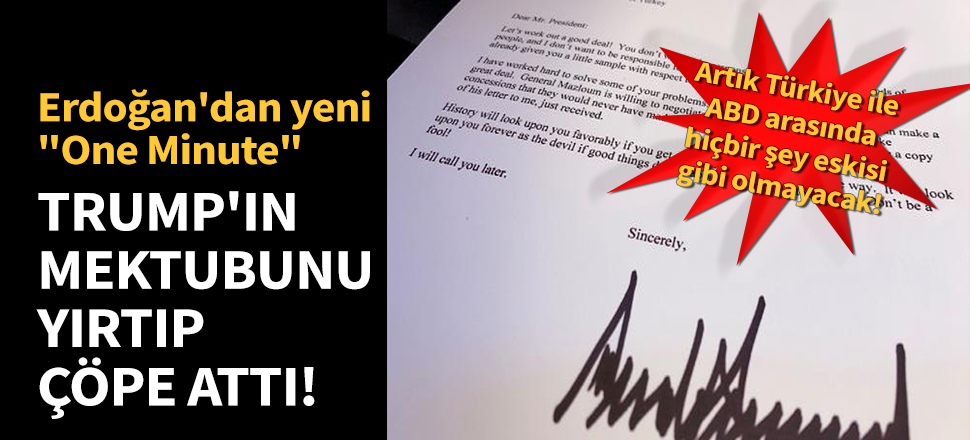 Erdoğan'dan yeni
"One Minute"
TRUMP'IN
MEKTUBUNU
YIRTIP
ÇÖPE ATTI!
Turkey
Dear Mr. President:
Let's work out a good deal! You don't
people, and I don't want to be responsible
already given you a little sample with respect
I have worked hard to solve some of your problems.
great deal. General Mazloum is willing to negotiate
concessions that they would never have made
of his letter to me, just received.
make a
a copy
History will look upon you favorably if you get
way. It look
upon you forever as the devil if good things
be a
fool!
I will call you later.
Sincerely,
Artık Türkiye ile
ABD arasında
hiçbir şey eskisi
gibi olmayacak!